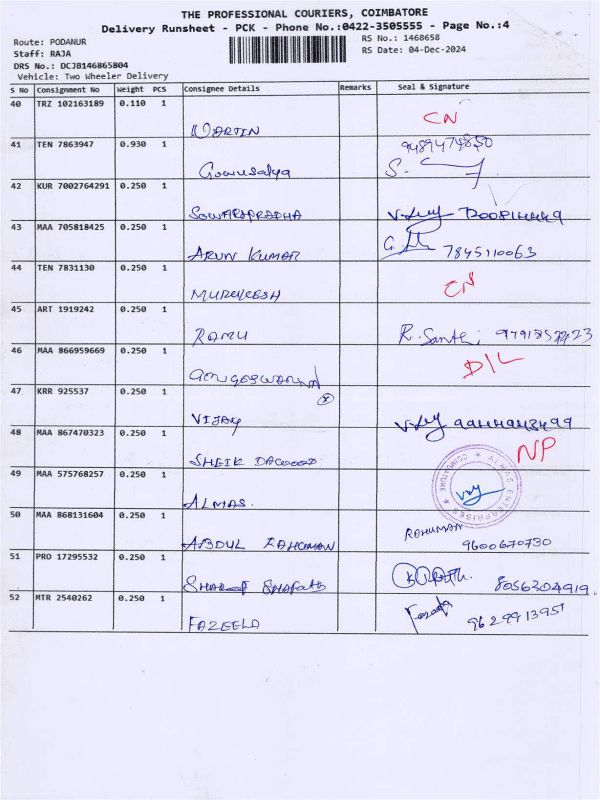 THE PROFESSIONAL COURIERS, COIMBATORE
Delivery Runsheet - PCK - Phone No.:0422-3505555 - Page No.:4
Route: PODANUR RS No.: 1468658
Staff: RAJA RS Date: 04-Dec-2024
DRS No.: DCJB146865804
Vehicle: Two Wheeler Delivery
S No Consignment No Weight PCS Consignee Details Remarks Seal & Signature
40 TRZ 102163189 0.110 1
MARTIN CN
41 TEN 7863947 0.930 1
Gowusalya S.
42 KUR 7002764291 0.250 1
SOWARAPRADHA
43 MAA 705818425 0.250 1
ARUN KUMAR 7845110063
44 TEN 7831130 0.250 1
MURUKESH CN
45 ART 1919242 0.250 1
RAMU R. Santhi
46 MAA 866959669 0.250 1
D/L
47 KRR 925537 0.250 1
VIJAY
48 MAA 867470323 0.250 1
SHEIK DAWOOD NP
49 MAA 575768257 0.250 1
ALMAS. SVAS ENTERPRISES COIMBATORE
50 MAA 868131604 0.250 1
ABDUL RAHUMAN RAHUMAN 9600670730
51 PRO 17295532 0.250 1
8056304919.
52 MTR 2540262 0.250 1
FAZEELA 9629913951